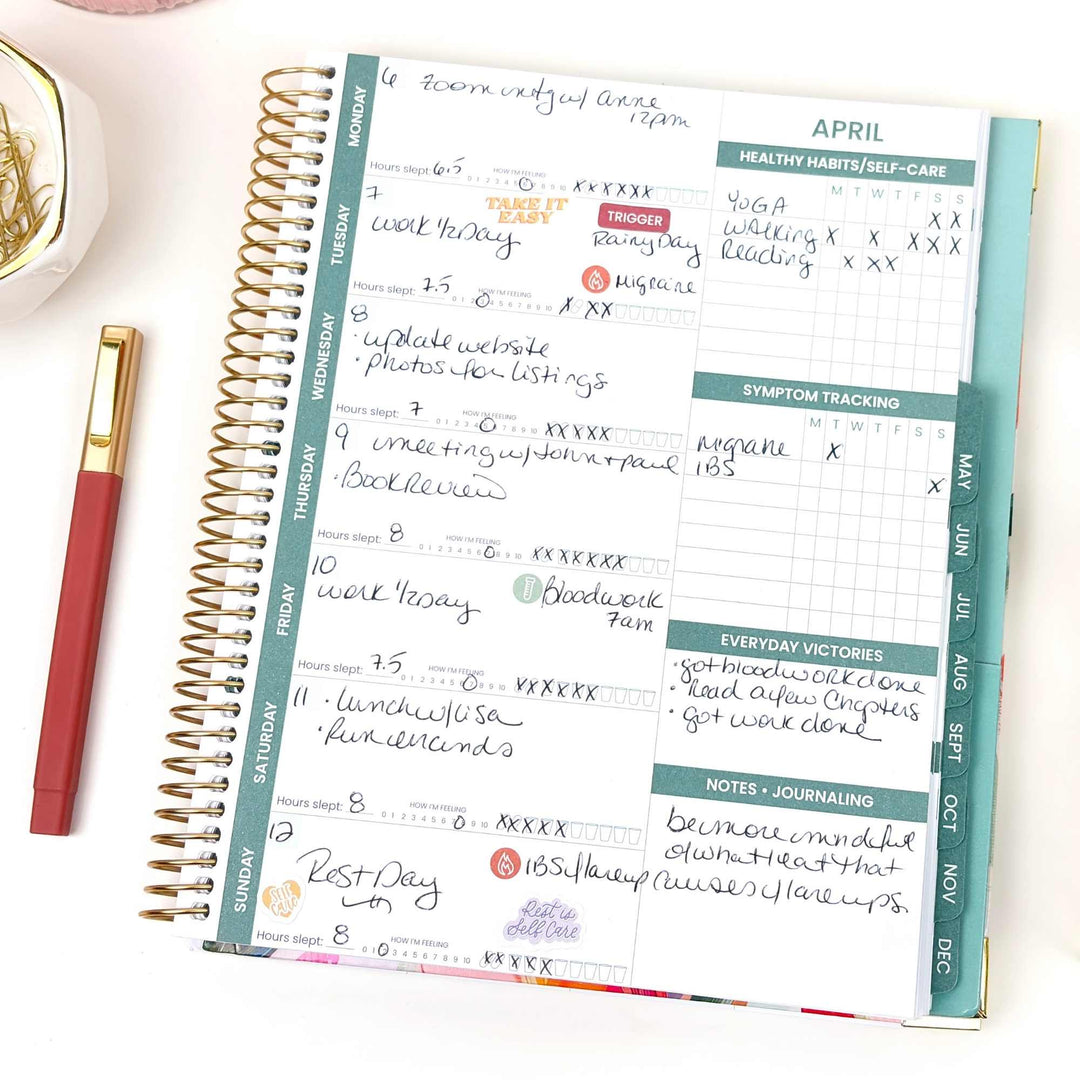 MONDAY
6 Zoom mtg w/ Anne
12pm
Hours slept: 6.5
HOW I'M FEELING
0 1 2 3 4 5 7 8 9 10
X X X X X X
TUESDAY
7
TAKE IT
EASY
TRIGGER
Work 1/2 Day
Rainy Day
Migraine
Hours slept: 7.5
HOW I'M FEELING
0 1 2 4 5 6 7 8 9 10
X X X
WEDNESDAY
8
• update website
• photos for listings
Hours slept: 7
HOW I'M FEELING
0 1 2 3 4 6 7 8 9 10
X X X X X
THURSDAY
9 meeting w/ John + paul
• Book Review
Hours slept: 8
HOW I'M FEELING
0 1 2 3 4 5 6 8 9 10
X X X X X X X
FRIDAY
10
work 1/2 Day
Bloodwork
7am
Hours slept: 7.5
HOW I'M FEELING
0 1 2 3 4 5 6 8 9 10
X X X X X X
SATURDAY
11 • Lunch w/ Lisa
• Run errands
Hours slept: 8
HOW I'M FEELING
0 1 2 3 4 5 6 7 9 10
X X X X X
SUNDAY
12
Rest Day
IBS flareup
SELF
CARE
Rest is
Self Care
Hours slept: 8
HOW I'M FEELING
0 1 3 4 5 6 7 8 9 10
X X X X X
APRIL
HEALTHY HABITS/SELF-CARE
M T W T F S S
YOGA X X
Walking X X X X X
Reading X X X
SYMPTOM TRACKING
M T W T F S S
Migrane X
IBS X
EVERYDAY VICTORIES
• got bloodwork done
• Read a few Chapters
• got work done
NOTES • JOURNALING
be more mindful
of what I eat that
causes flareups
MAY
JUN
JUL
AUG
SEPT
OCT
NOV
DEC